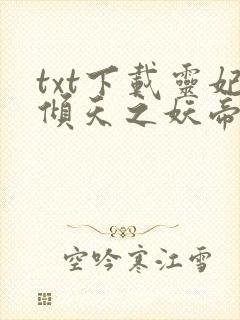 txt下載靈妃
傾天之妖帝
空吟寒江雪